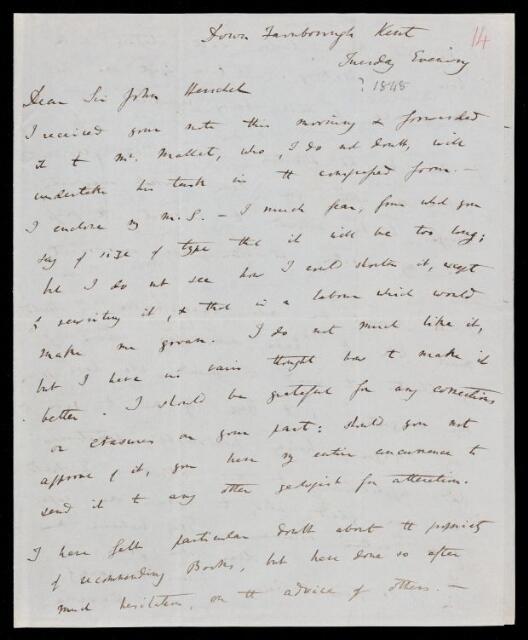 Down Farnborough Kent
14
Tuesday Evening
? 1848
Dear Sir John Herschel
I received your note this morning & forwarded
it to Mr. Mallet, who, I do not doubt, will
undertake his task in the compressed form. —
I enclose my M.S. — I much fear, from what you
say of size of type that it will be too long;
but I do not see how I could shorten it, except
by rewriting it, & that is a labour which would
make me groan. I do not much like it,
but I have in vain thought how to make it
better. I should be grateful for any corrections
or erasures on your part: should you not
approve of it, you have my entire concurrence to
send it to any other geologist for alteration.
I have felt particular doubt about the propriety
of recommending Books, but have done so after
much hesitation, on the advice of others. —